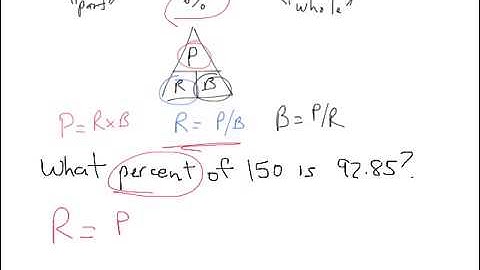 "part" % "whole"
P
R B
P=R×B R = P/B B = P/R
What percent of 150 is 92.85?
R = P